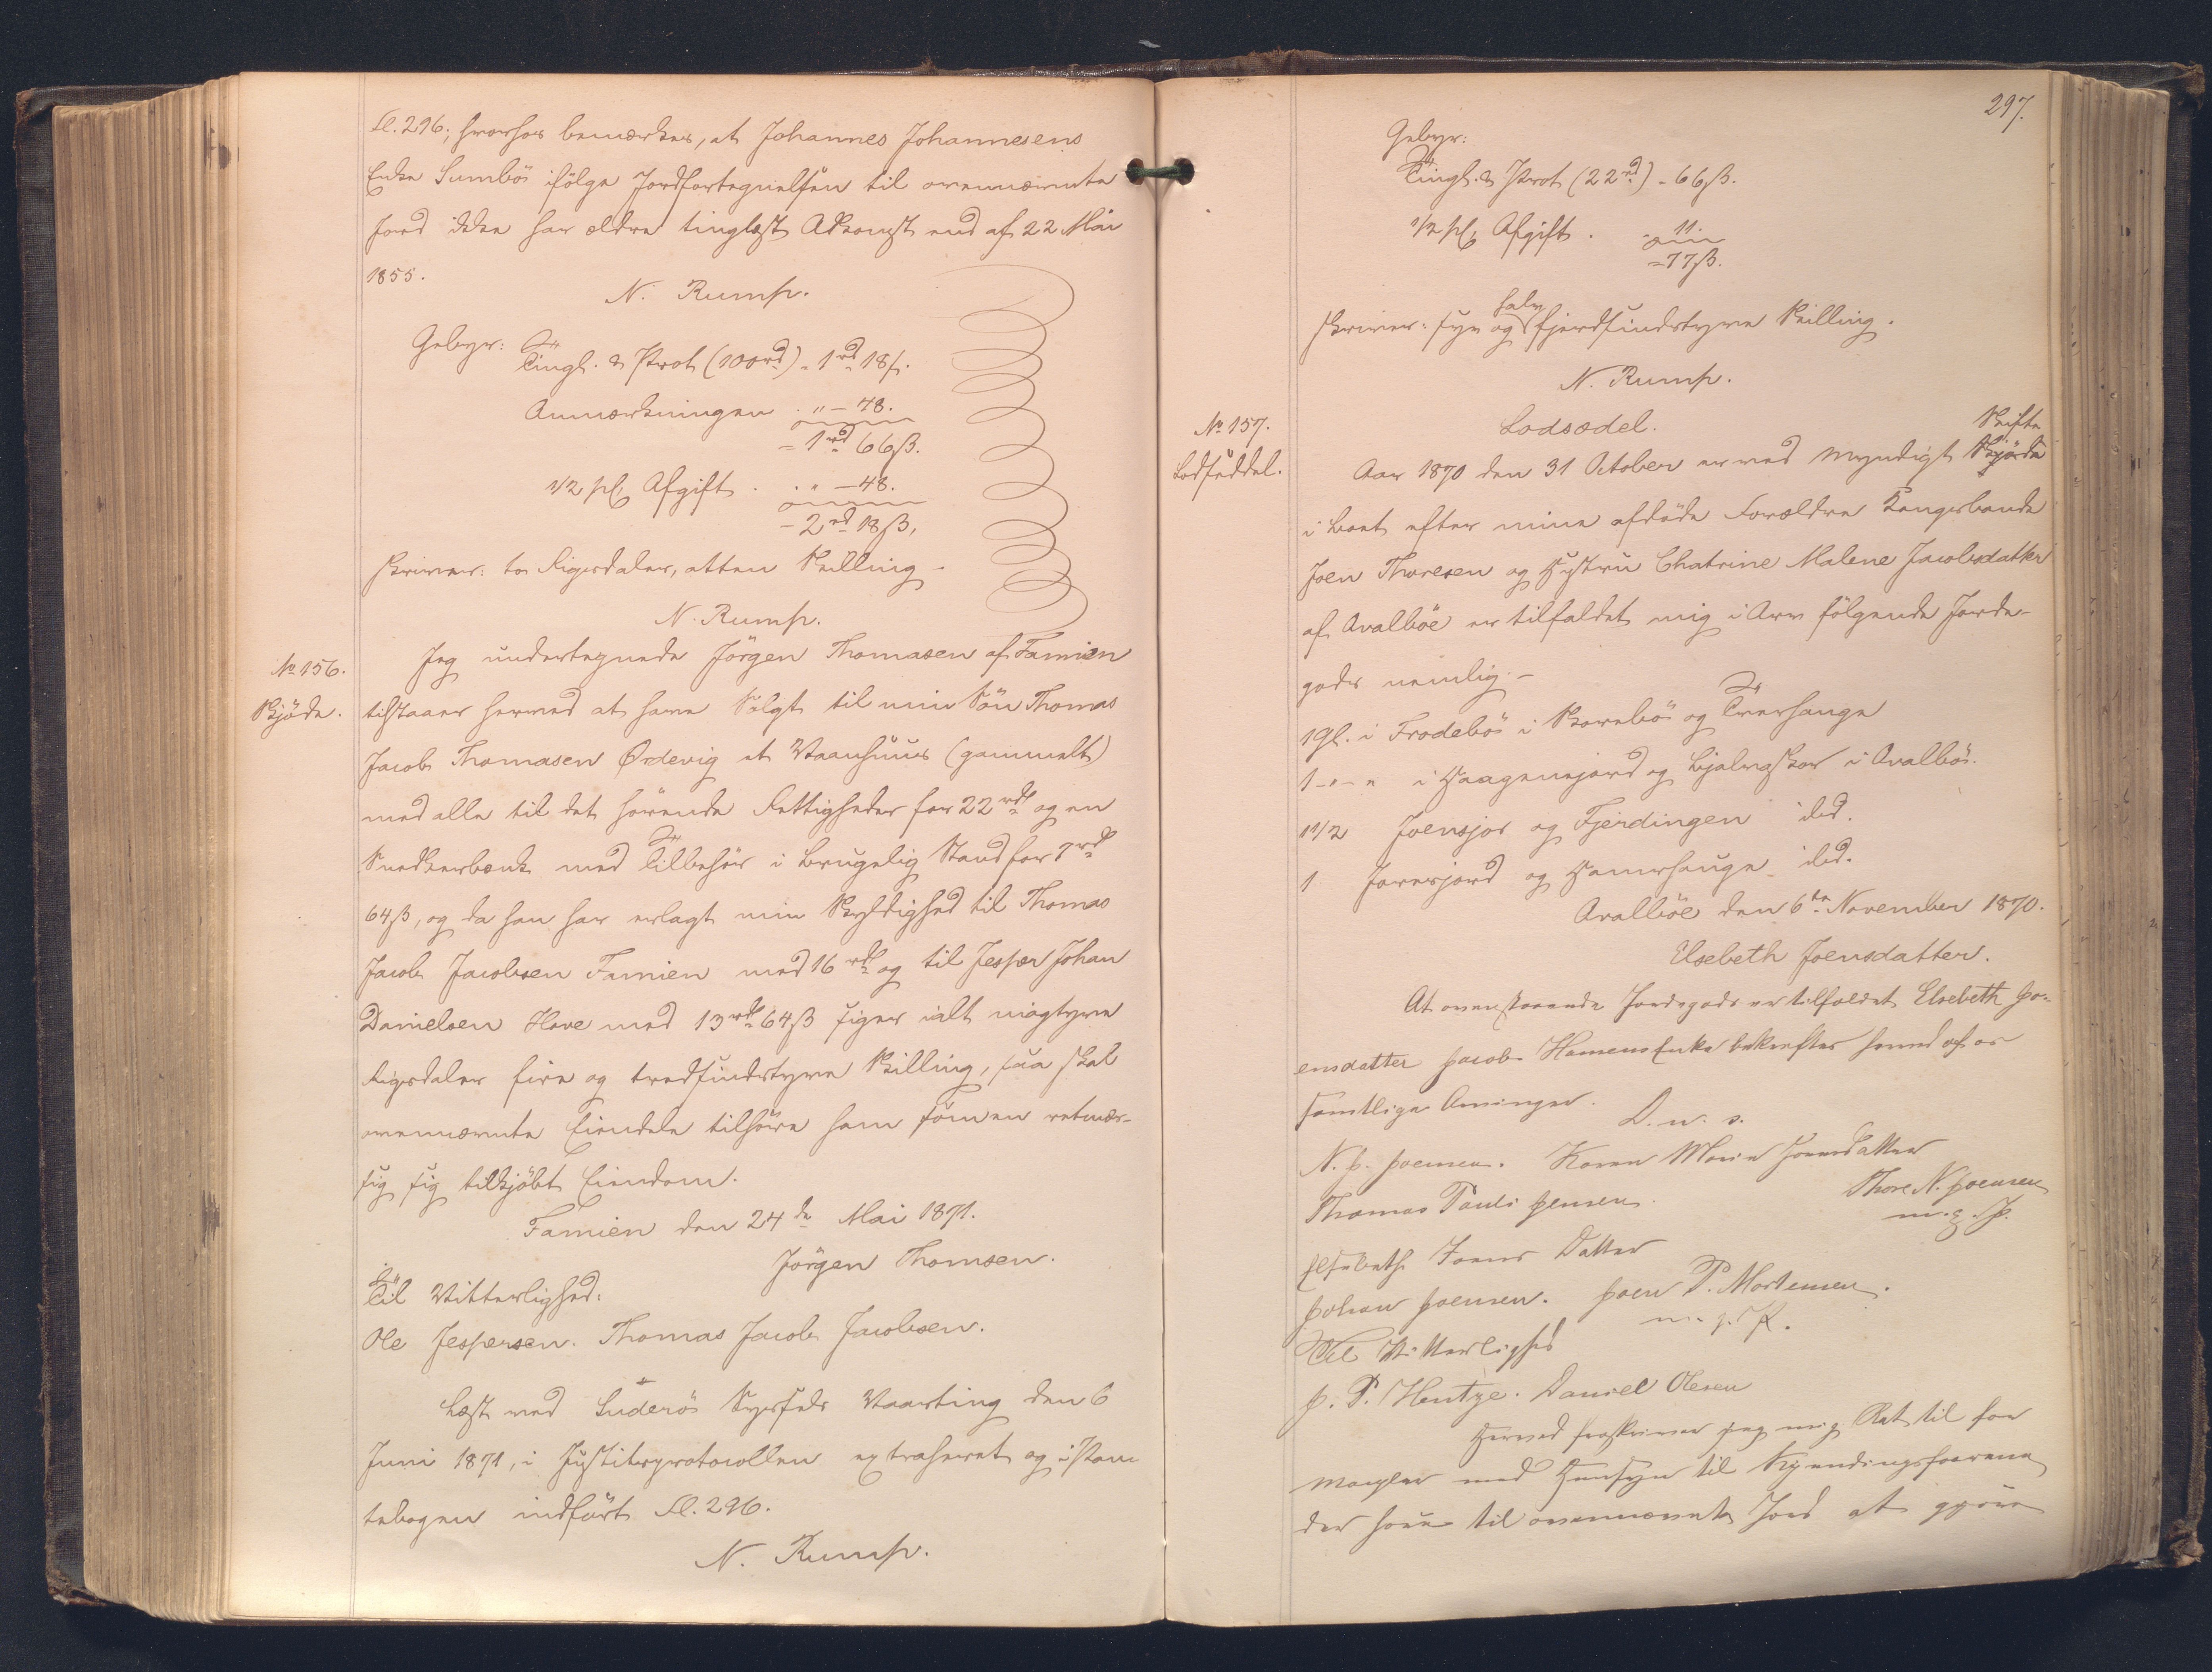 fl. 296; hvorhos bemærkes, at Johannes Johannesens
Enke Sumbö ifölge Jordfortegnelsen til ovennævnte
Jord ikke har ældre tinglæst Adkomst end af 22 Mai
1855.
N. Rump.
Gebyr: Tingl. & Prot (100rd) - 1rd 18ß.
Anmærkningen . " - 48.
= 1rd 66ß.
1/2 pCt Afgift . . " - 48.
- 2rd 18ß,
skriver: to Rigsdaler, atten Skilling.
N. Rump.
No 156.
Skjöde.
Jeg undertegnede Jörgen Thomasen af Famien
tilstaaer herved at have solgt til min Sön Thomas
Jacob Thomasen Ördevig et Vaanhuus (gammelt)
med alle til det hörende Rettigheder for 22 rd og en
Snedkerbænk med Tilbehör i brugelig Stand for 7 rd
64ß, og da han har erlagt min Skyldighed til Thomas
Jacob Jacobsen Famien med 16 rd og til Jesper Johan
Danielsen Hove med 13 rd 64ß siger ialt niogtyve
Rigsdaler fire og tredsindstyve Skilling, saa skal
ovennævnte Eiendele tilhöre ham som en retmæs-
sig sig tilkjöbt Eiendom.
Famien den 24de Mai 1871.
Jörgen Thomsen.
Til Vitterlighed:
Ole Jespersen. Thomas Jacob Jacobsen.
Læst ved Suderö Sysfels Vaarting den 6
Juni 1871, i Justitsprotocollen extraheret og i Pan
tebogen indfört fl. 296.
N. Rump.
297.
Gebyr:
Tingl. & Prot (22rd) - 66ß.
1/2 pCt Afgift . - 11.
= 77ß.
skriver: syv og halvfjerdsindstyve Skilling.
N. Rump.
No 157.
Lodseddel.
Lodsedel.
Aar 1870 den 31 October er ved myndigt Skifte
i Boet efter mine afdöde Forældre Kongsbonde
Joen Thoresen og Hustru Chatrine Malene Jacobsdatter
af Qvalböe er tilfaldet mig i Arv fölgende Jorde-
gods nemlig -
1 gl. i Frodebö i Skorebö og Tverhauge
1 - " - " i Haagensjord og Hjalgskor i Qvalbö.
1 1/2 Joensjor og Fjerdingen ibd.
1 Joresjord og Hamrhauge ibd.
Qvalböe den 6te November 1870.
Elsebeth Joensdatter.
At ovenstaaende Jordegods er tilfaldet Elsebeth Jo-
ensdatter Jacob Hansens Enke bekræftes herved af os
samtlige Arvinger.
D. u. s.
N. J. Joensen. Karen Maria Joensdatter
Thomas Pauli Jensen. Thore N. Joensen
m. f. P.
Elsebeth Joens Datter
Johan Joensen. Joen P. Mortensen.
m. f. P.
Til Vitterlighed
J. P. Hentze. Daniel Olesen
Herved forskriver jeg mig Ret til for
Mangler med Hensyn til Kyndingsforerne
der höre til ovennævnte Jord at gjöre